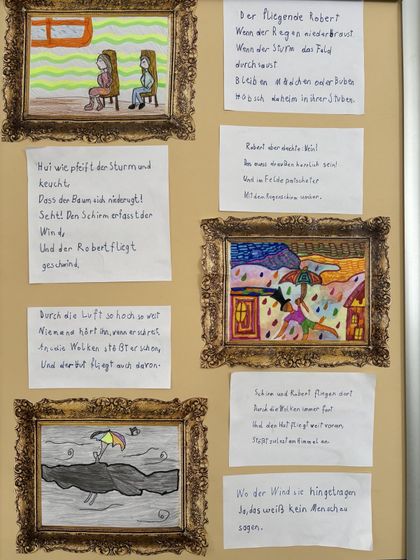 Der fliegende Robert
Wenn der Regen niederbraust
Wenn der Sturm das Feld
durchsaust
Bleiben Mädchen oder Buben
Hübsch daheim in ihrer Stuben.
Robert aber dachte: Nein!
Das muss draußen herrlich sein!
Und im Felde patschet er
Mit dem Regenschirm umher.
Hui wie pfeift der Sturm und
keucht,
Dass der Baum sich niederugt!
Seht! Den Schirm erfasst der
Wind,
Und der Robert fliegt
geschwind,
Durch die Luft so hoch so weit
Niemand hört ihn, wenn er schreit.
An die Wolken stößt er schon,
Und der Hut fliegt auch davon.
Schirm und Robert fliegen dort
Durch die Wolken immer fort
Und der Hut fliegt weit voran,
Stößt zuletzt am Himmel an.
Wo der Wind sie hingetragen
Ja, das weiß kein Mensch zu
sagen.